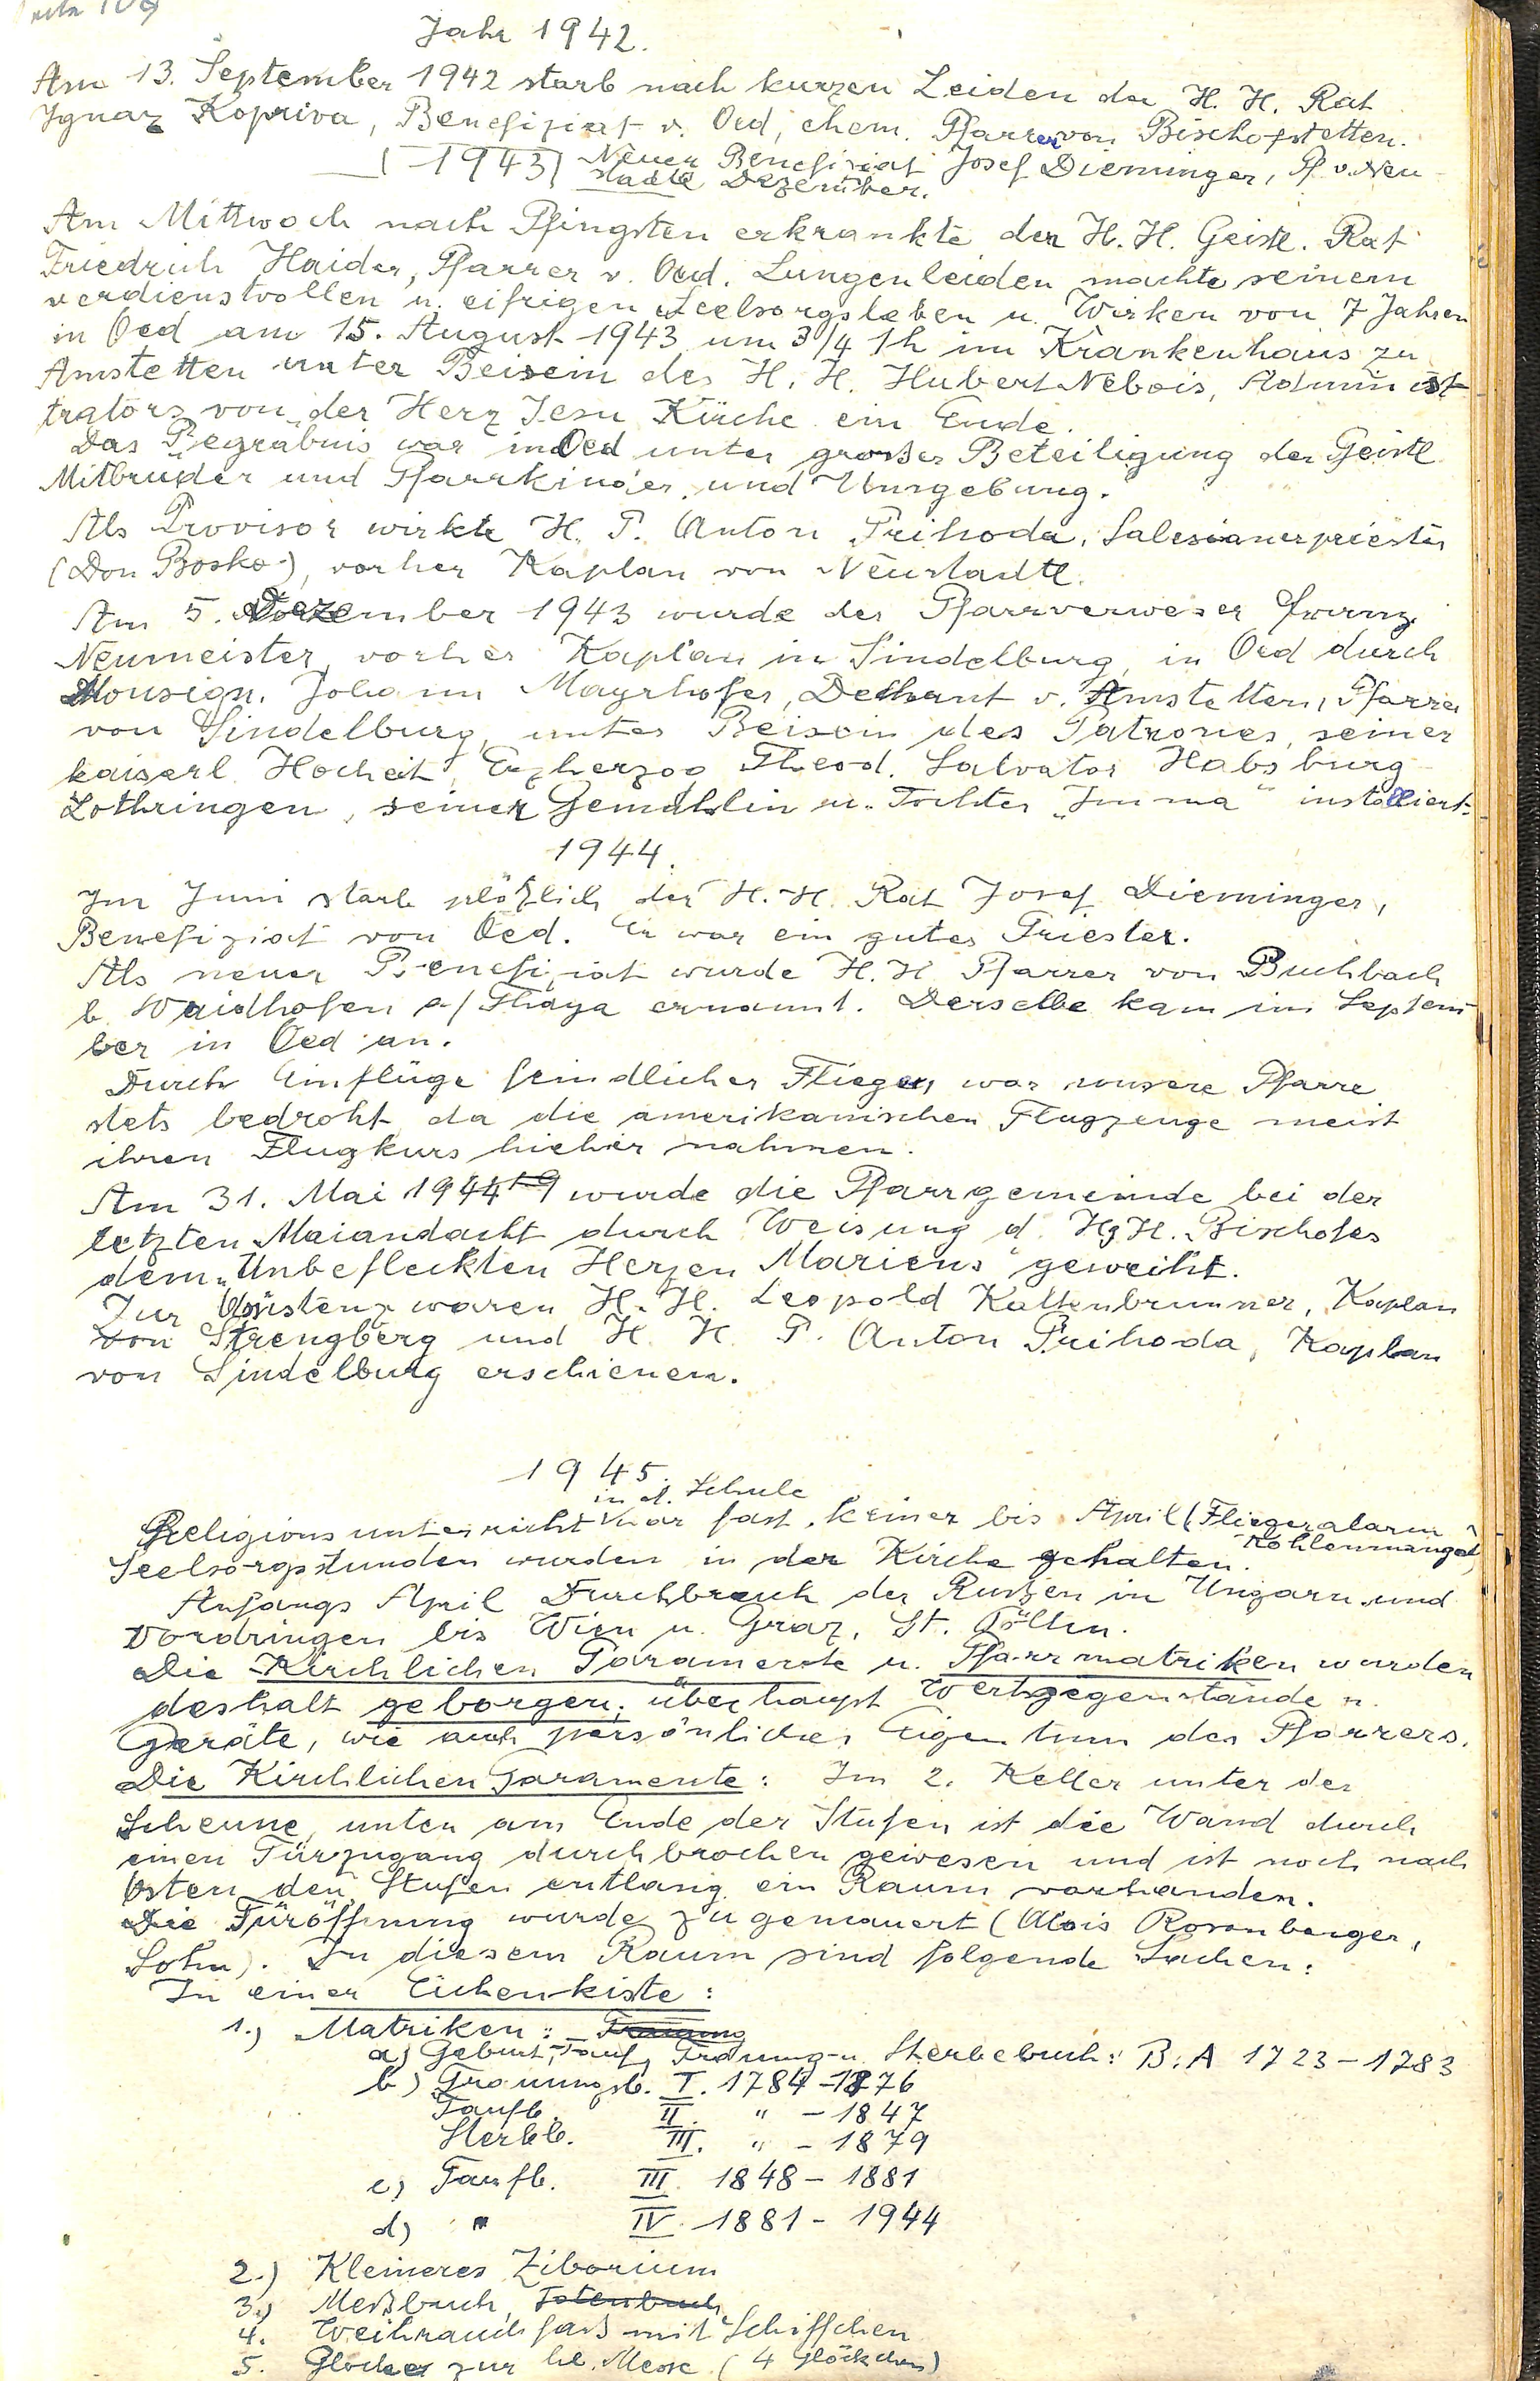 Seite 109
Jahr 1942.
Am 13. September 1942 starb nach kurzen Leiden der H. H. Rat
Ignaz Kopriva, Benefiziat v. Oed, ehem. Pfarrer von Bischofstetten.
1943 Neuer Benefiziat Josef Dieminger, Pf. v. Neu-
stadtl Dezember.
Am Mittwoch nach Pfingsten erkrankte der H. H. Geistl. Rat
Friedrich Haider, Pfarrer v. Oed. Lungenleiden machte seinem
verdienstvollen u. eifrigen Seelsorgsleben u. Wirken von 7 Jahren
in Oed am 15. August 1943 um 3/4 1h im Krankenhaus zu
Amstetten unter Beisein des H. H. Hubert Nebois, Administ-
trators von der Herz Jesu Kirche ein Ende.
Das Begräbnis war in Oed unter grosser Beteiligung der Geistl.
Mitbrüder und Pfarrkinder und Umgebung.
Als Provisor wirkte H. P. Anton Prihoda, Salesianerpriester
(Don Bosko), vorher Kaplan von Neustadtl.
Am 5. Dezember 1943 wurde der Pfarrverweser Franz
Neumeister, vorher Kaplan in Sindelburg, in Oed durch
Monsign. Johann Mayrhofer, Dechant v. Amstetten, Pfarrer
von Sindelburg, unter Beisein des Patrones, seiner
kaiserl. Hocheit, Erzherzog Theod. Salvator Habsburg-
Lothringen, seiner Gemahlin u. Tochter „Imma" installiert.
1944.
Im Juni starb plötzlich der H. H. Rat Josef Dieminger,
Benefiziat von Oed. Er war ein guter Priester.
Als neuer Benefiziat wurde H. H. Pfarrer von Buchbach
b. Waidhofen a/ Thaya ernannt. Derselbe kam im Septem-
ber in Oed an.
Durch Einflüge feindlicher Flieger, war unsere Pfarre
stets bedroht, da die amerikanischen Flugzeuge meist
ihren Flugkurs hieher nahmen.
Am 31. Mai 1944 wurde die Pfarrgemeinde bei der
letzten Maiandacht durch Weisung d. H. H. Bischofes
dem „Unbefleckten Herzen Mariens" geweiht.
Zur Assistenz waren H. H. Leopold Kaltenbrunner, Kaplan
von Strengberg und H. H. P. Anton Prihoda, Kaplan
von Sindelburg erschienen.
1945.
in d. Schule
Religionsunterricht war fast keiner bis April (Fliegeralarm
Kohlenmangel)
Seelsorgsstunden wurden in der Kirche gehalten.
Anfangs April Durchbruch der Russen in Ungarn und
Vordringen bis Wien u. Graz, St. Pölten.
Die Kirchlichen Paramente u. Pfarrmatriken wurden
deshalb geborgen, überhaupt Wertgegenstände u.
Geräte, wie auch persönliches Eigentum des Pfarrers.
Die Kirchlichen Paramente: Im 2. Keller unter der
Scheune, unten am Ende der Stufen ist die Wand durch
einen Türzugang durchbrochen gewesen und ist noch nach
Osten den Stufen entlang ein Raum vorhanden.
Die Türöffnung wurde zugemauert (Alois Rosenberger,
Sohn). In diesem Raum sind folgende Sachen:
In einer Eichenkiste:
1.) Matriken: Trauung
a) Geburt, Tauf, Trauung- u. Sterbebuch: B: A 1723 - 1783
b) Trauungsb. I. 1784 - 1876
Taufb. II. " - 1847
Sterbb. III. " - 1879
c) Taufb. III. 1848 - 1881
d) " IV. 1881 - 1944
2.) Kleineres Ziborium
3.) Meßbuch, Totenbuch
4. Weihrauchfass mit Schiffchen
5. Glocken zur hl. Messe (4 Glöckchen)